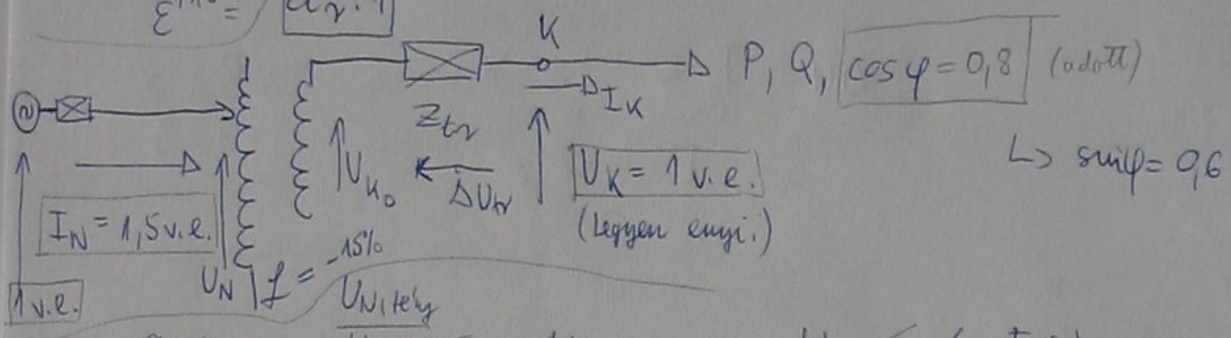 ε =
K
P, Q, cos φ = 0,8 (adott)
I_K
Z_tr
↳ sinφ = 0,6
U_K0
ΔU_tr
U_K = 1 v.e.
(legyen ennyi.)
I_N = 1,5 v.e.
-15%
U_N
1 v.e.
U_N,tény